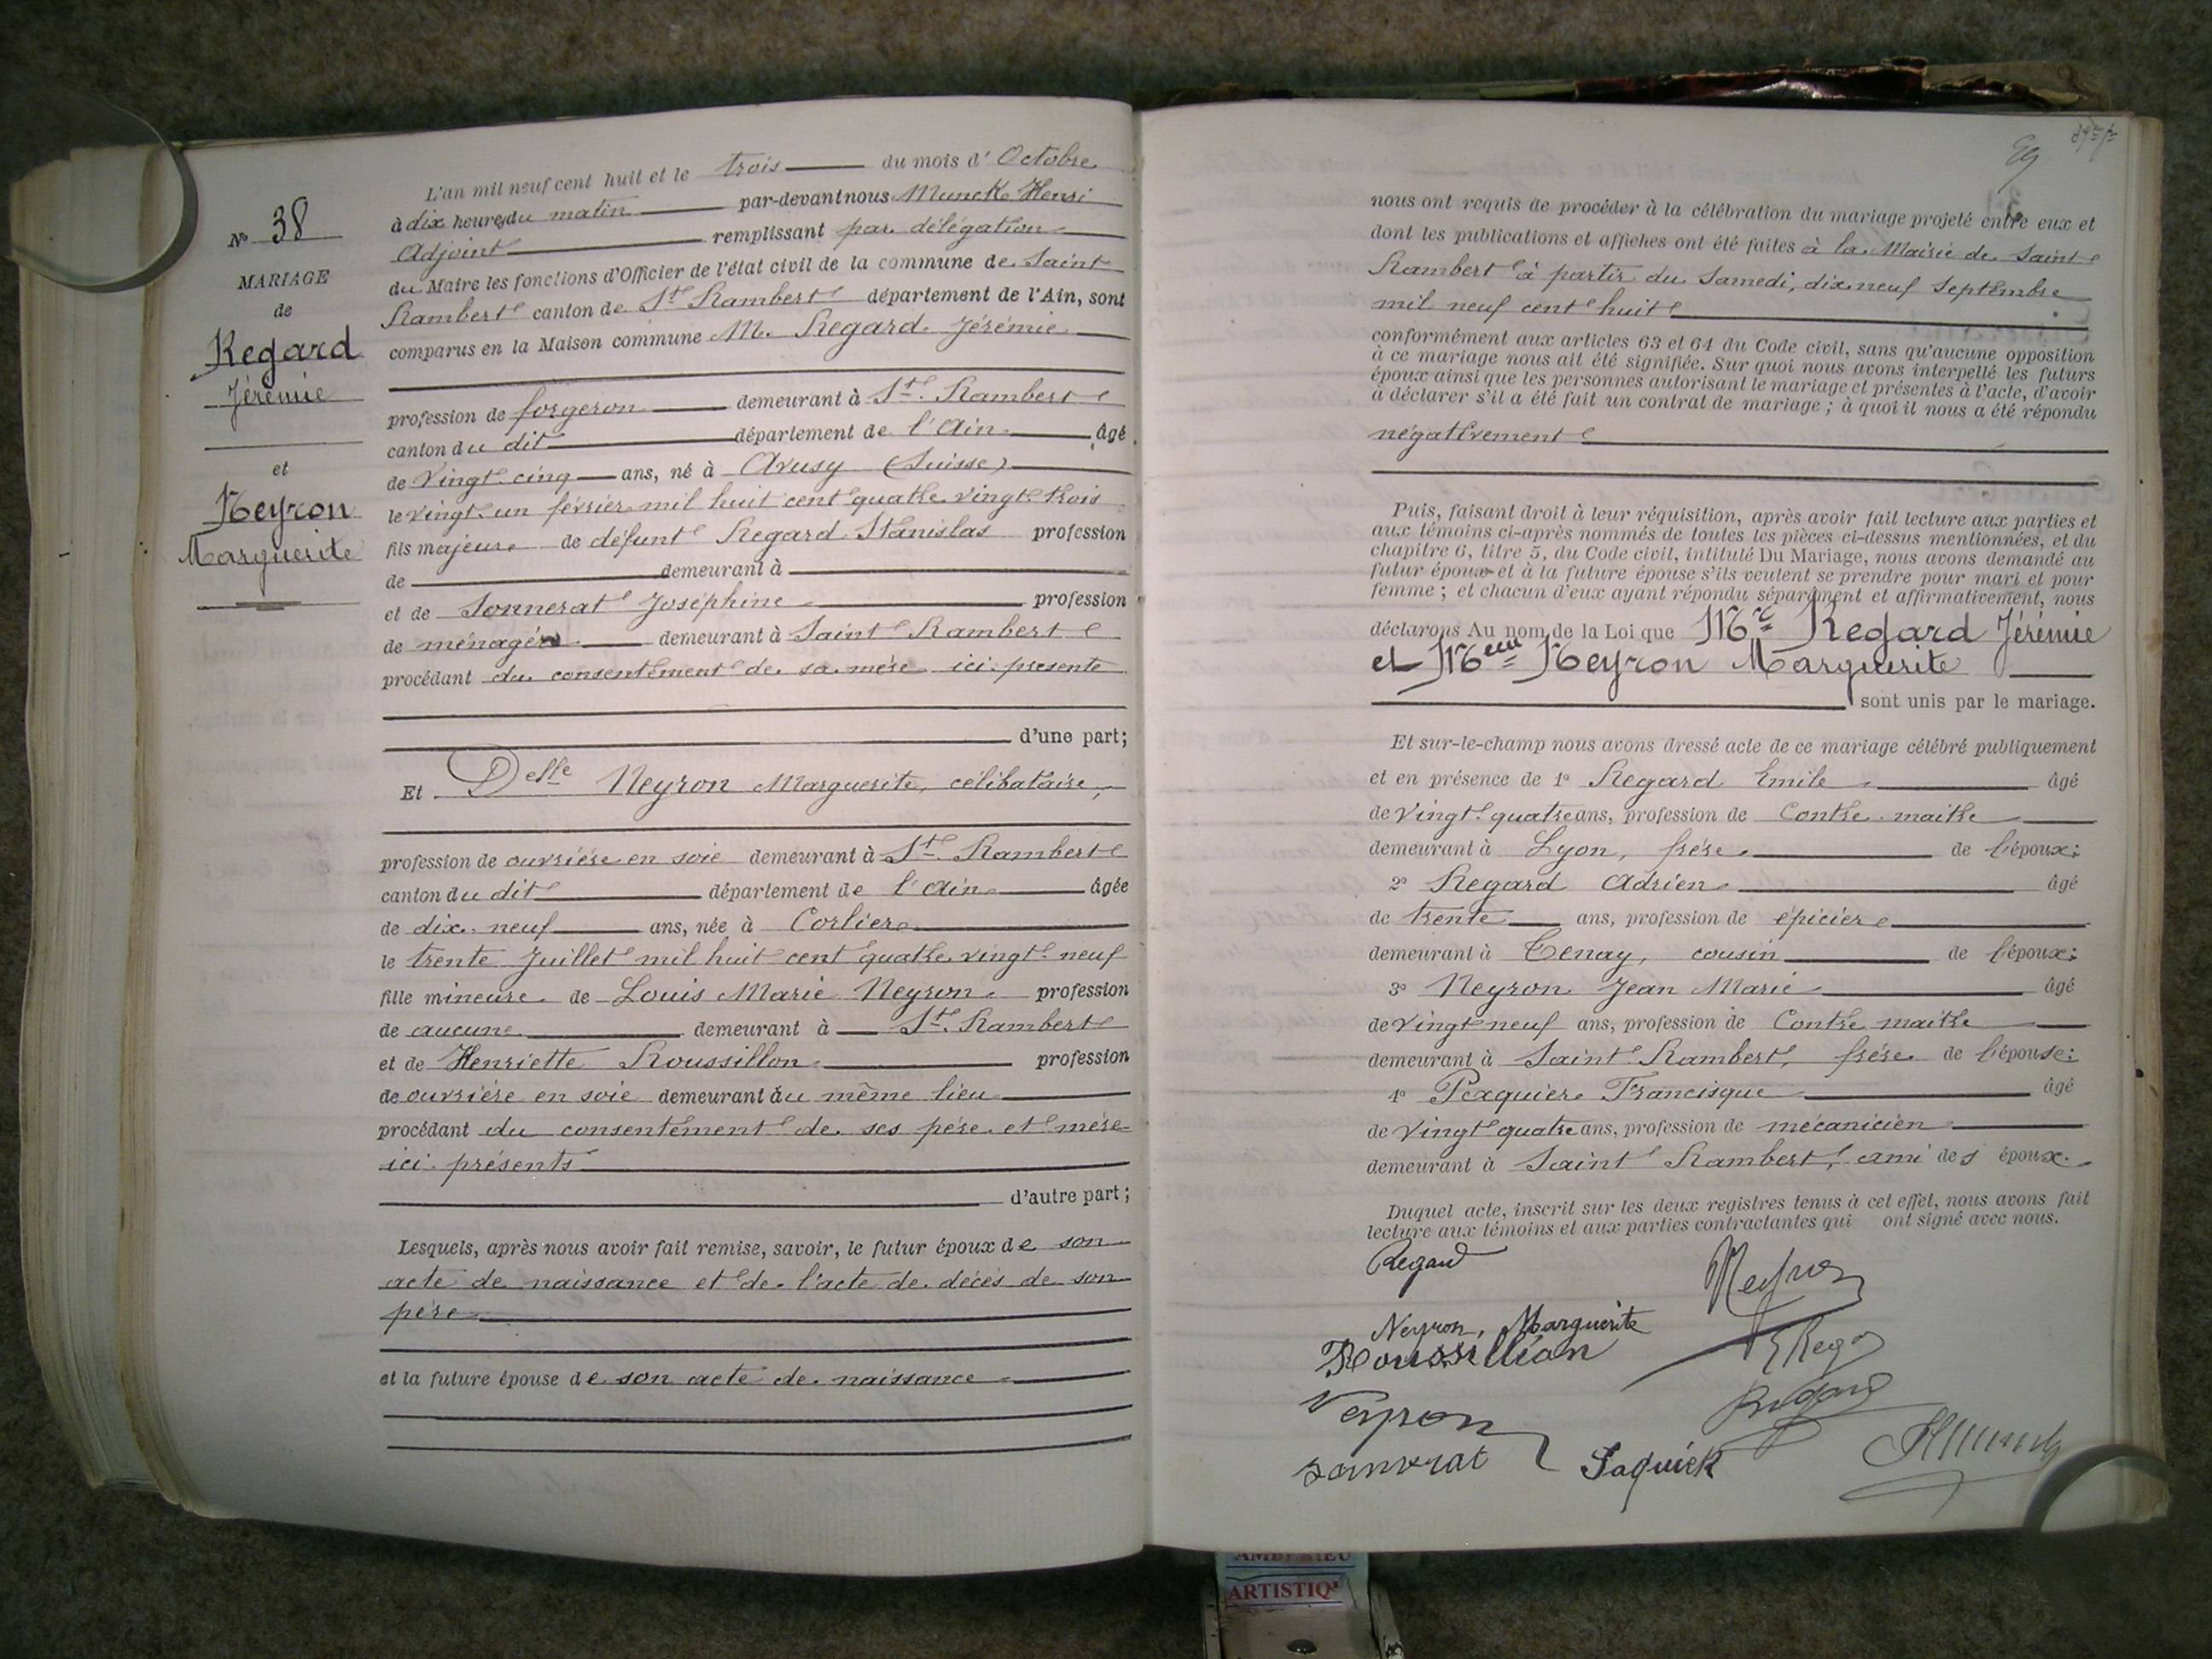 N° 38
MARIAGE
de
Regard
Jérémie
et
Neyron
Marguerite
L'an mil neuf cent huit et le trois du mois d'Octobre
à dix heures du matin par-devant nous Munck Henri
Adjoint remplissant par délégation
du Maire les fonctions d'Officier de l'état civil de la commune de Saint
Rambert canton de St Rambert département de l'Ain, sont
comparus en la Maison commune M. Regard Jérémie
profession de forgeron demeurant à St. Rambert
canton du dit département de l'Ain âgé
de Vingt-cinq ans, né à Avusy (Suisse)
le vingt-un février mil huit cent quatre vingt-trois
fils majeur de défunt Regard Stanislas profession
de demeurant à
et de Sonnerat Joséphine profession
de ménagère demeurant à Saint Rambert
procédant du consentement de sa mère ici présente
d'une part;
Et Delle Neyron Marguerite, célibataire,
profession de ouvrière en soie demeurant à St. Rambert
canton du dit département de l'Ain âgée
de dix-neuf ans, née à Corlier
le trente Juillet mil huit cent quatre vingt-neuf
fille mineure de Louis Marie Neyron profession
de aucune demeurant à St. Rambert
et de Henriette Roussillon profession
de ouvrière en soie demeurant au même lieu
procédant du consentement de ses père et mère
ici présents
d'autre part;
Lesquels, après nous avoir fait remise, savoir, le futur époux de son
acte de naissance et de l'acte de décès de son
père
et la future épouse de son acte de naissance
nous ont requis de procéder à la célébration du mariage projeté entre eux et
dont les publications et affiches ont été faites à la Mairie de Saint
Rambert à partir du Samedi, dix neuf Septembre
mil neuf cent huit
conformément aux articles 63 et 64 du Code civil, sans qu'aucune opposition
à ce mariage nous ait été signifiée. Sur quoi nous avons interpellé les futurs
époux ainsi que les personnes autorisant le mariage et présentes à l'acte, d'avoir
à déclarer s'il a été fait un contrat de mariage; à quoi il nous a été répondu
négativement
Puis, faisant droit à leur réquisition, après avoir fait lecture aux parties et
aux témoins ci-après nommés de toutes les pièces ci-dessus mentionnées, et du
chapitre 6, titre 5, du Code civil, intitulé Du Mariage, nous avons demandé au
futur époux et à la future épouse s'ils veulent se prendre pour mari et pour
femme; et chacun d'eux ayant répondu séparément et affirmativement, nous
déclarons Au nom de la Loi que Mr Regard Jérémie
et Melle Neyron Marguerite
sont unis par le mariage.
Et sur-le-champ nous avons dressé acte de ce mariage célébré publiquement
et en présence de 1° Regard Emile âgé
de Vingt-quatre ans, profession de Contre-maitre
demeurant à Lyon, frère de l'époux;
2° Regard Adrien âgé
de trente ans, profession de épicier
demeurant à Tenay, cousin de l'époux;
3° Neyron Jean Marie âgé
de vingt neuf ans, profession de Contre maitre
demeurant à Saint Rambert, frère de l'épouse;
4° Paquier Francisque âgé
de vingt quatre ans, profession de mécanicien
demeurant à Saint Rambert, ami des époux.
Duquel acte, inscrit sur les deux registres tenus à cet effet, nous avons fait
lecture aux témoins et aux parties contractantes qui ont signé avec nous.
Regard
Neyron
Neyron, Marguerite
Roussillon
Regard
Neyron
Sonnerat
Paquier
ARTISTIQ